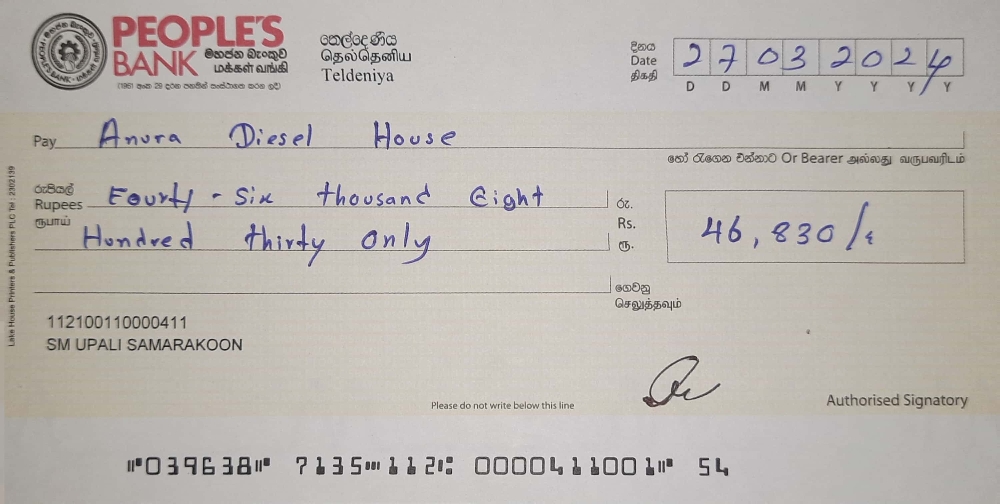 PEOPLE'S
BANK මහජන බැංකුව
மக்கள் வங்கி
(1961 අංක 29 දරන පනතින් සංස්ථාගත කරන ලදී)
තෙල්දෙණිය
தெல்தெனிய
Teldeniya
දිනය
Date
திகதி
27032024
D D M M Y Y Y Y
Pay Anura Diesel House
හෝ රැගෙන එන්නාට Or Bearer அல்லது வருபவரிடம்
රුපියල්
Rupees Fourty - Six thousand Eight
ரூபாய்
Hundred thirty Only
රු.
Rs.
ரூ.
46,830/-
ගෙවනු
செலுத்தவும்
112100110000411
SM UPALI SAMARAKOON
Please do not write below this line
Authorised Signatory
Lake House Printers & Publishers PLC Tel : 2302139
⑈039638⑈ 7135⑉112⑆ 0000411001⑈ 54